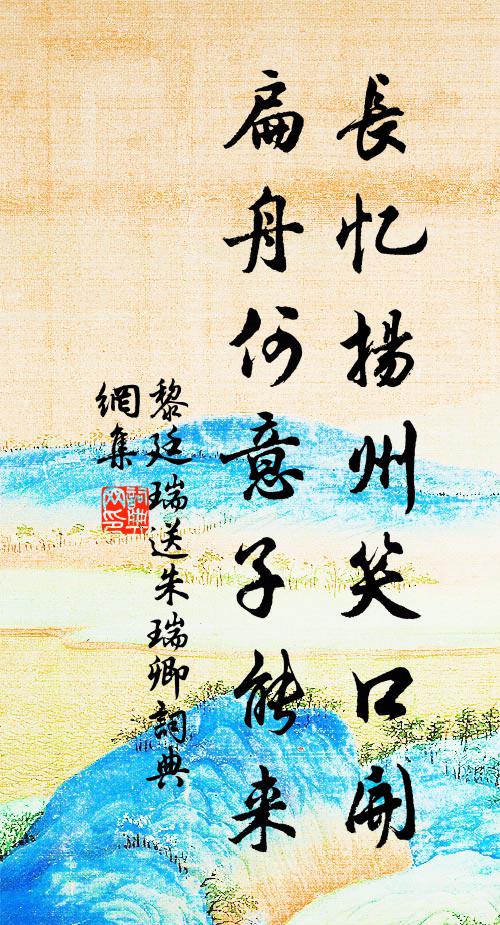 長忆揚州笑口開
扁舟何意子能来
黎廷瑞送朱瑞卿詞典
網集
詞典
网印